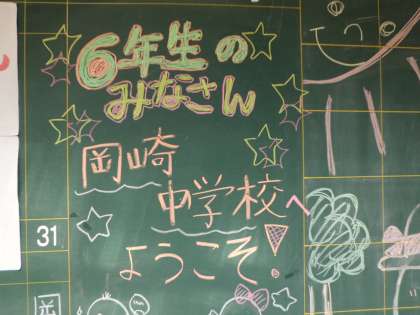 6年生の
みなさん
岡崎
中学校へ
ようこそ!
31